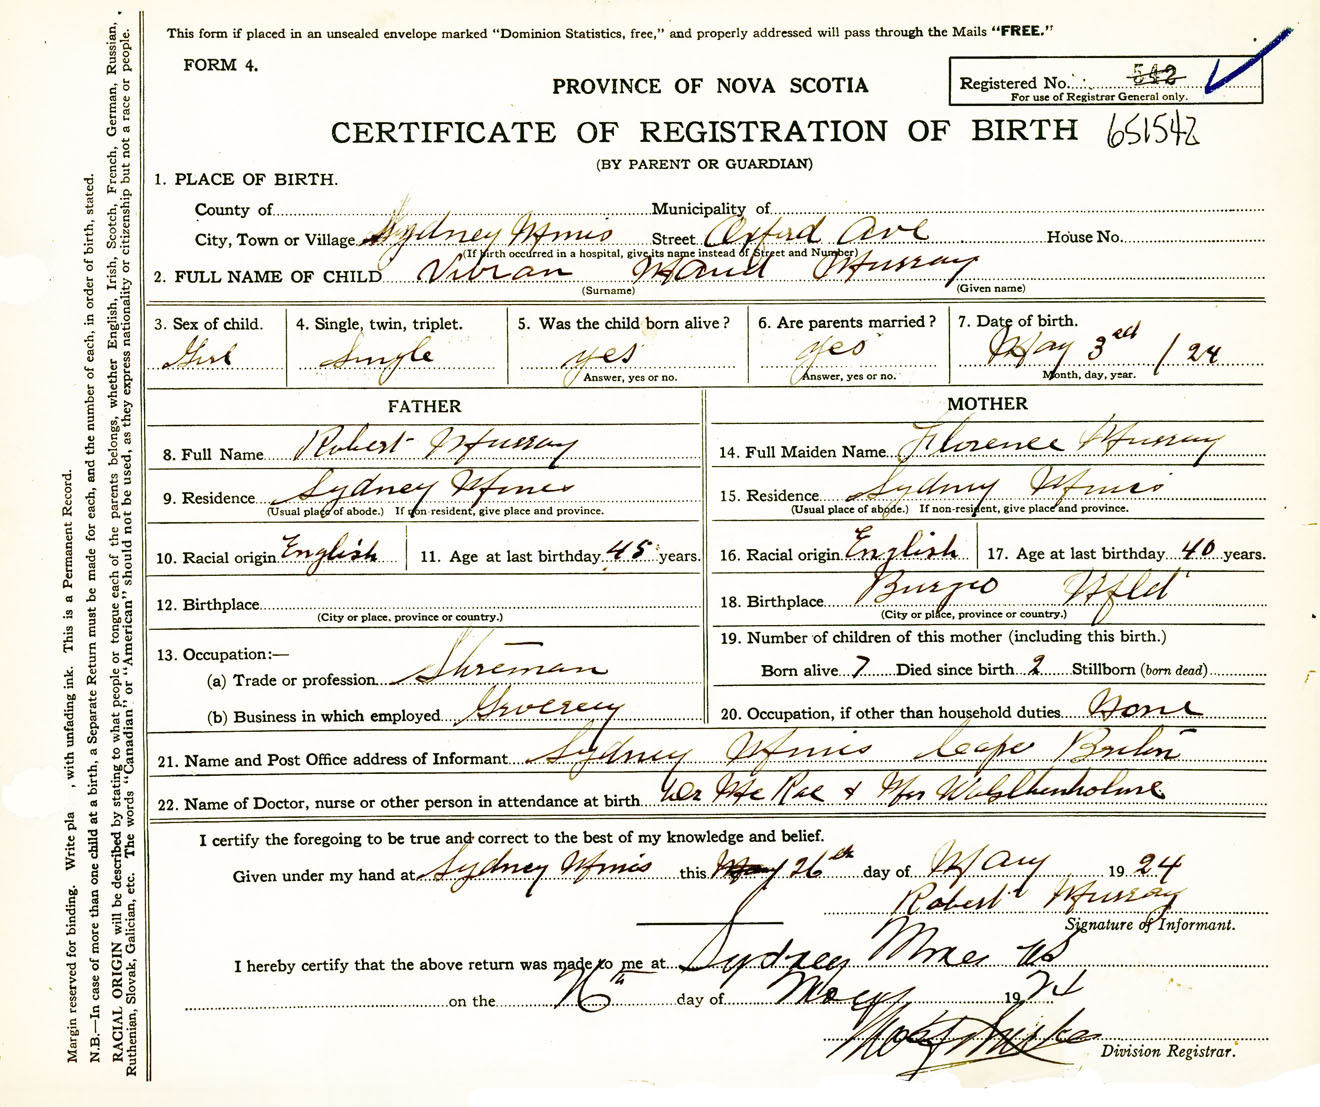 This form if placed in an unsealed envelope marked "Dominion Statistics, free," and properly addressed will pass through the Mails "FREE."
FORM 4.
PROVINCE OF NOVA SCOTIA
Registered No. 542
For use of Registrar General only.
CERTIFICATE OF REGISTRATION OF BIRTH 651542
(BY PARENT OR GUARDIAN)
1. PLACE OF BIRTH.
County of Municipality of
City, Town or Village Sydney Mines Street Oxford Ave House No.
(If birth occurred in a hospital, give its name instead of Street and Number)
2. FULL NAME OF CHILD Vibran Maud Murray
(Surname) (Given name)
3. Sex of child. 4. Single, twin, triplet. 5. Was the child born alive? 6. Are parents married? 7. Date of birth.
Girl Single yes yes May 3rd / 24
Answer, yes or no. Answer, yes or no. Month, day, year.
FATHER MOTHER
8. Full Name Robert Murray 14. Full Maiden Name Florence Murray
9. Residence Sydney Mines 15. Residence Sydney Mines
(Usual place of abode.) If non-resident, give place and province. (Usual place of abode.) If non-resident, give place and province.
10. Racial origin English 11. Age at last birthday 45 years. 16. Racial origin English 17. Age at last birthday 40 years.
12. Birthplace 18. Birthplace Burgeo Nfld
(City or place, province or country.) (City or place, province or country.)
13. Occupation:— 19. Number of children of this mother (including this birth.)
(a) Trade or profession Born alive 7 Died since birth 2 Stillborn (born dead)
(b) Business in which employed Grocery 20. Occupation, if other than household duties None
21. Name and Post Office address of Informant Sydney Mines Cape Breton
22. Name of Doctor, nurse or other person in attendance at birth Dr McRae &
I certify the foregoing to be true and correct to the best of my knowledge and belief.
Given under my hand at Sydney Mines this May 26th day of May 1924
Robert Murray
Signature of Informant.
I hereby certify that the above return was made to me at Sydney Mines NS
on the day of May 1924
Division Registrar.
Margin reserved for binding. Write pla , with unfading ink. This is a Permanent Record.
N.B.—In case of more than one child at a birth, a Separate Return must be made for each, and the number of each, in order of birth, stated.
RACIAL ORIGIN will be described by stating to what people or tongue each of the parents belongs, whether English, Irish, Scotch, French, German, Russian,
Ruthenian, Slovak, Galician, etc. The words "Canadian" or "American" should not be used, as they express nationality or citizenship but not a race or people.